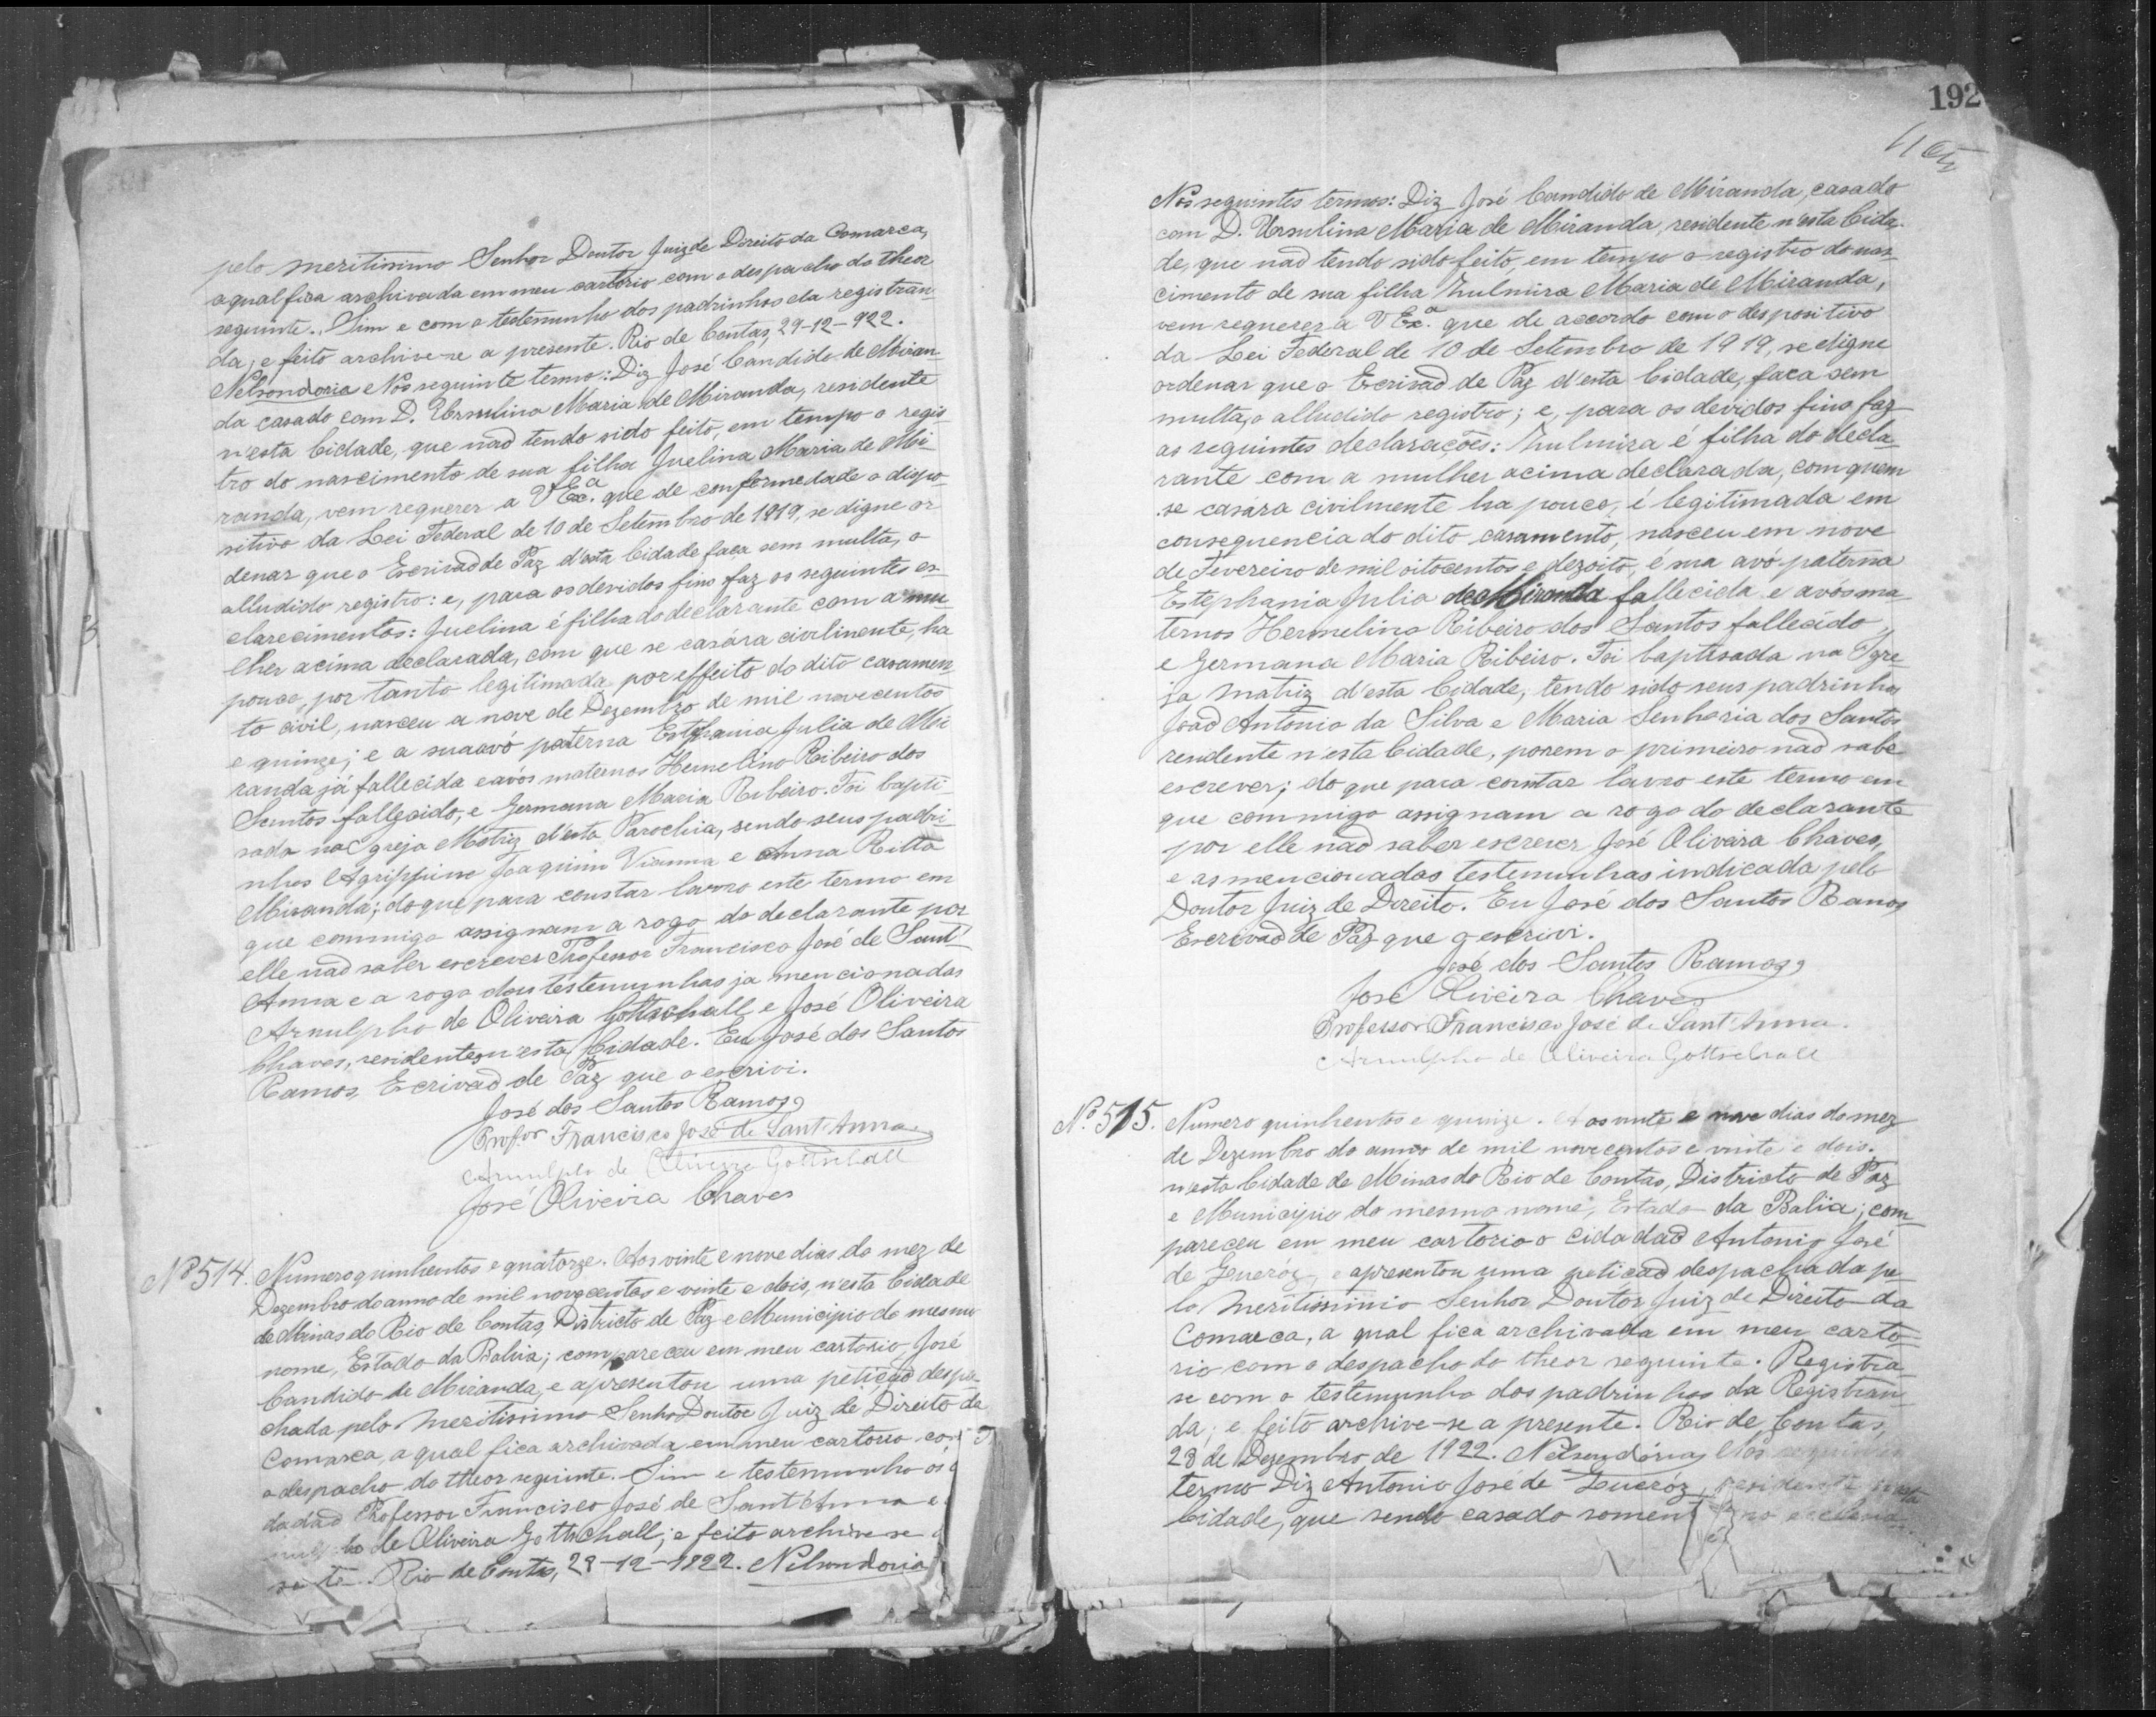 pelo meritissimo Senhor Doutor Juiz de Direito da Comarca,
a qual fica archivada em meu cartorio com o despacho do theor
seguinte. Sim e com o testemunho dos padrinhos da registran-
da; e feito archive-se a presente. Rio de Contas, 29-12-922.
Nelsondoria Nos seguinte termo: Diz José Candido de Miran-
da casado com D. Ursulina Maria de Miranda, residente
n'esta Cidade, que naõ tendo sido feito, em tempo o regis-
tro do nascimento de sua filha Juelina Maria de Mi-
randa, vem requerer a V Exª. que de conformedade o dispo-
sitivo da Lei Federal de 10 de Setembro de 1919, se digne or
denar que o Escrivaõ de Paz d'esta Cidade faça sem multa, o
alludido registro: e, para os devidos fins faz os seguintes es-
clarecimentos: Juelina é filha do declarante com a mu-
lher acima declarada, com que se casára civilmente, ha
pouco, por tanto legitimada por effeito do dito casamen-
to civil, nasceu a nove de Dezembro de mil novecentos
e quinze; e a sua avó paterna Estephania Julia de Mi
randa já fallecida e avós maternos Hermelino Ribeiro dos
Santos fallecido, e Germana Maria Ribeiro. Foi bapti-
sada na Igreja Matriz d'esta Parochia, sendo seus padri-
nhos Agrippino Joaquim Vianna e Anna Ritta
Miranda; do que para constar lavro este termo em
que commigo assignam a rogo do declarante por
elle naõ saber escrever Professor Francisco José de Sant'
Anna e a rogo das testemunhas ja mencionadas
Arnulpho de Oliveira Gottschall e José Oliveira
Chaves, residentes n'esta Cidade. Eu José dos Santos
Ramos, Escrivaõ de Paz que o escrivi.
José dos Santos Ramos
Profor Francisco José de Sant'Anna
Arnulpho de Oliveira Gottschall
José Oliveira Chaves
Nº 514. Numero quinhentos e quatorze. Aos vinte e nove dias do mez de
Dezembro do anno de mil novecentos e vinte e dois, n'esta Cidade
de Minas do Rio de Contas, Districto de Paz e Municipio do mesmo
nome, Estado da Bahia; compareceu em meu cartorio, José
Candido de Miranda, e apresentou uma petiçaõ despa-
chada pelo Meritissimo Senhor Doutor Juiz de Direito da
Comarca, a qual fica archivada em meu cartorio com
o despacho do theor seguinte. Sim e testemunho os
dadaõ Professor Francisco José de Sant'Anna e
de Oliveira Gottschall; e feito archive-se
Rio de Contas, 28-12-1922. Nelsondoria
192
Nos seguintes termos: Diz José Candido de Miranda, casado
com D. Ursulina Maria de Miranda, residente n'esta Cida-
de, que naõ tendo sido feito, em tempo o registro do nas-
cimento de sua filha Zulmira Maria de Miranda,
vem requerer a V Exª. que de accordo com o despositivo
da Lei Federal de 10 de Setembro de 1919, se digne
ordenar que o Escrivaõ de Paz d'esta Cidade, faça sem
multa, o alludido registro; e, para os devidos fins faz
as seguintes declarações: Zulmira é filha do decla-
rante com a mulher acima declarada, com quem
se casára civilmente ha pouco, é legitimada em
consequencia do dito casamento, nasceu em nove
de Fevereiro de mil oitocentos e dezoito, é sua avó paterna
Estephania Julia de Miranda fallecida e avós ma-
ternos Hermelino Ribeiro dos Santos fallecido,
e Germana Maria Ribeiro. Foi baptisada na Igre-
ja Matriz d'esta Cidade, tendo sido seus padrinhos
Joaõ Antonio da Silva e Maria Senhoria dos Santos
residente n'esta Cidade, porem o primeiro naõ sabe
escrever; do que para constar lavro este termo em
que commigo assignam a rogo do declarante
por elle naõ saber escrever José Oliveira Chaves,
e as mencionadas testemunhas indicada pelo
Doutor Juiz de Direito. Eu José dos Santos Ramos
Escrivaõ de Paz que o escrivi.
José dos Santos Ramos
José Oliveira Chaves
Professor Francisco José de Sant'Anna.
Arnulpho de Oliveira Gottschall
Nº. 515. Numero quinhentos e quinze. Aos vinte e nove dias do mez
de Dezembro do anno de mil novecentos e vinte e dois.
n'esta Cidade de Minas do Rio de Contas, Districto de Paz
e Municipio do mesmo nome, Estado da Bahia; com-
pareceu em meu cartorio o cidadaõ Antonio José
de Queróz, e apresentou uma petiçaõ despachada pe-
lo Meritissimo Senhor Doutor Juiz de Direito da
Comarca, a qual fica archivada em meu carto-
rio com o despacho do theor seguinte. Registra-
se com o testemunho dos padrinhos da Registran-
da; e feito archive-se a presente. Rio de Contas,
28 de Dezembro de 1922. Nelsondória, Nos seguintes
termo Diz Antonio José de Queróz, residente n'esta
Cidade, que sendo casado somen